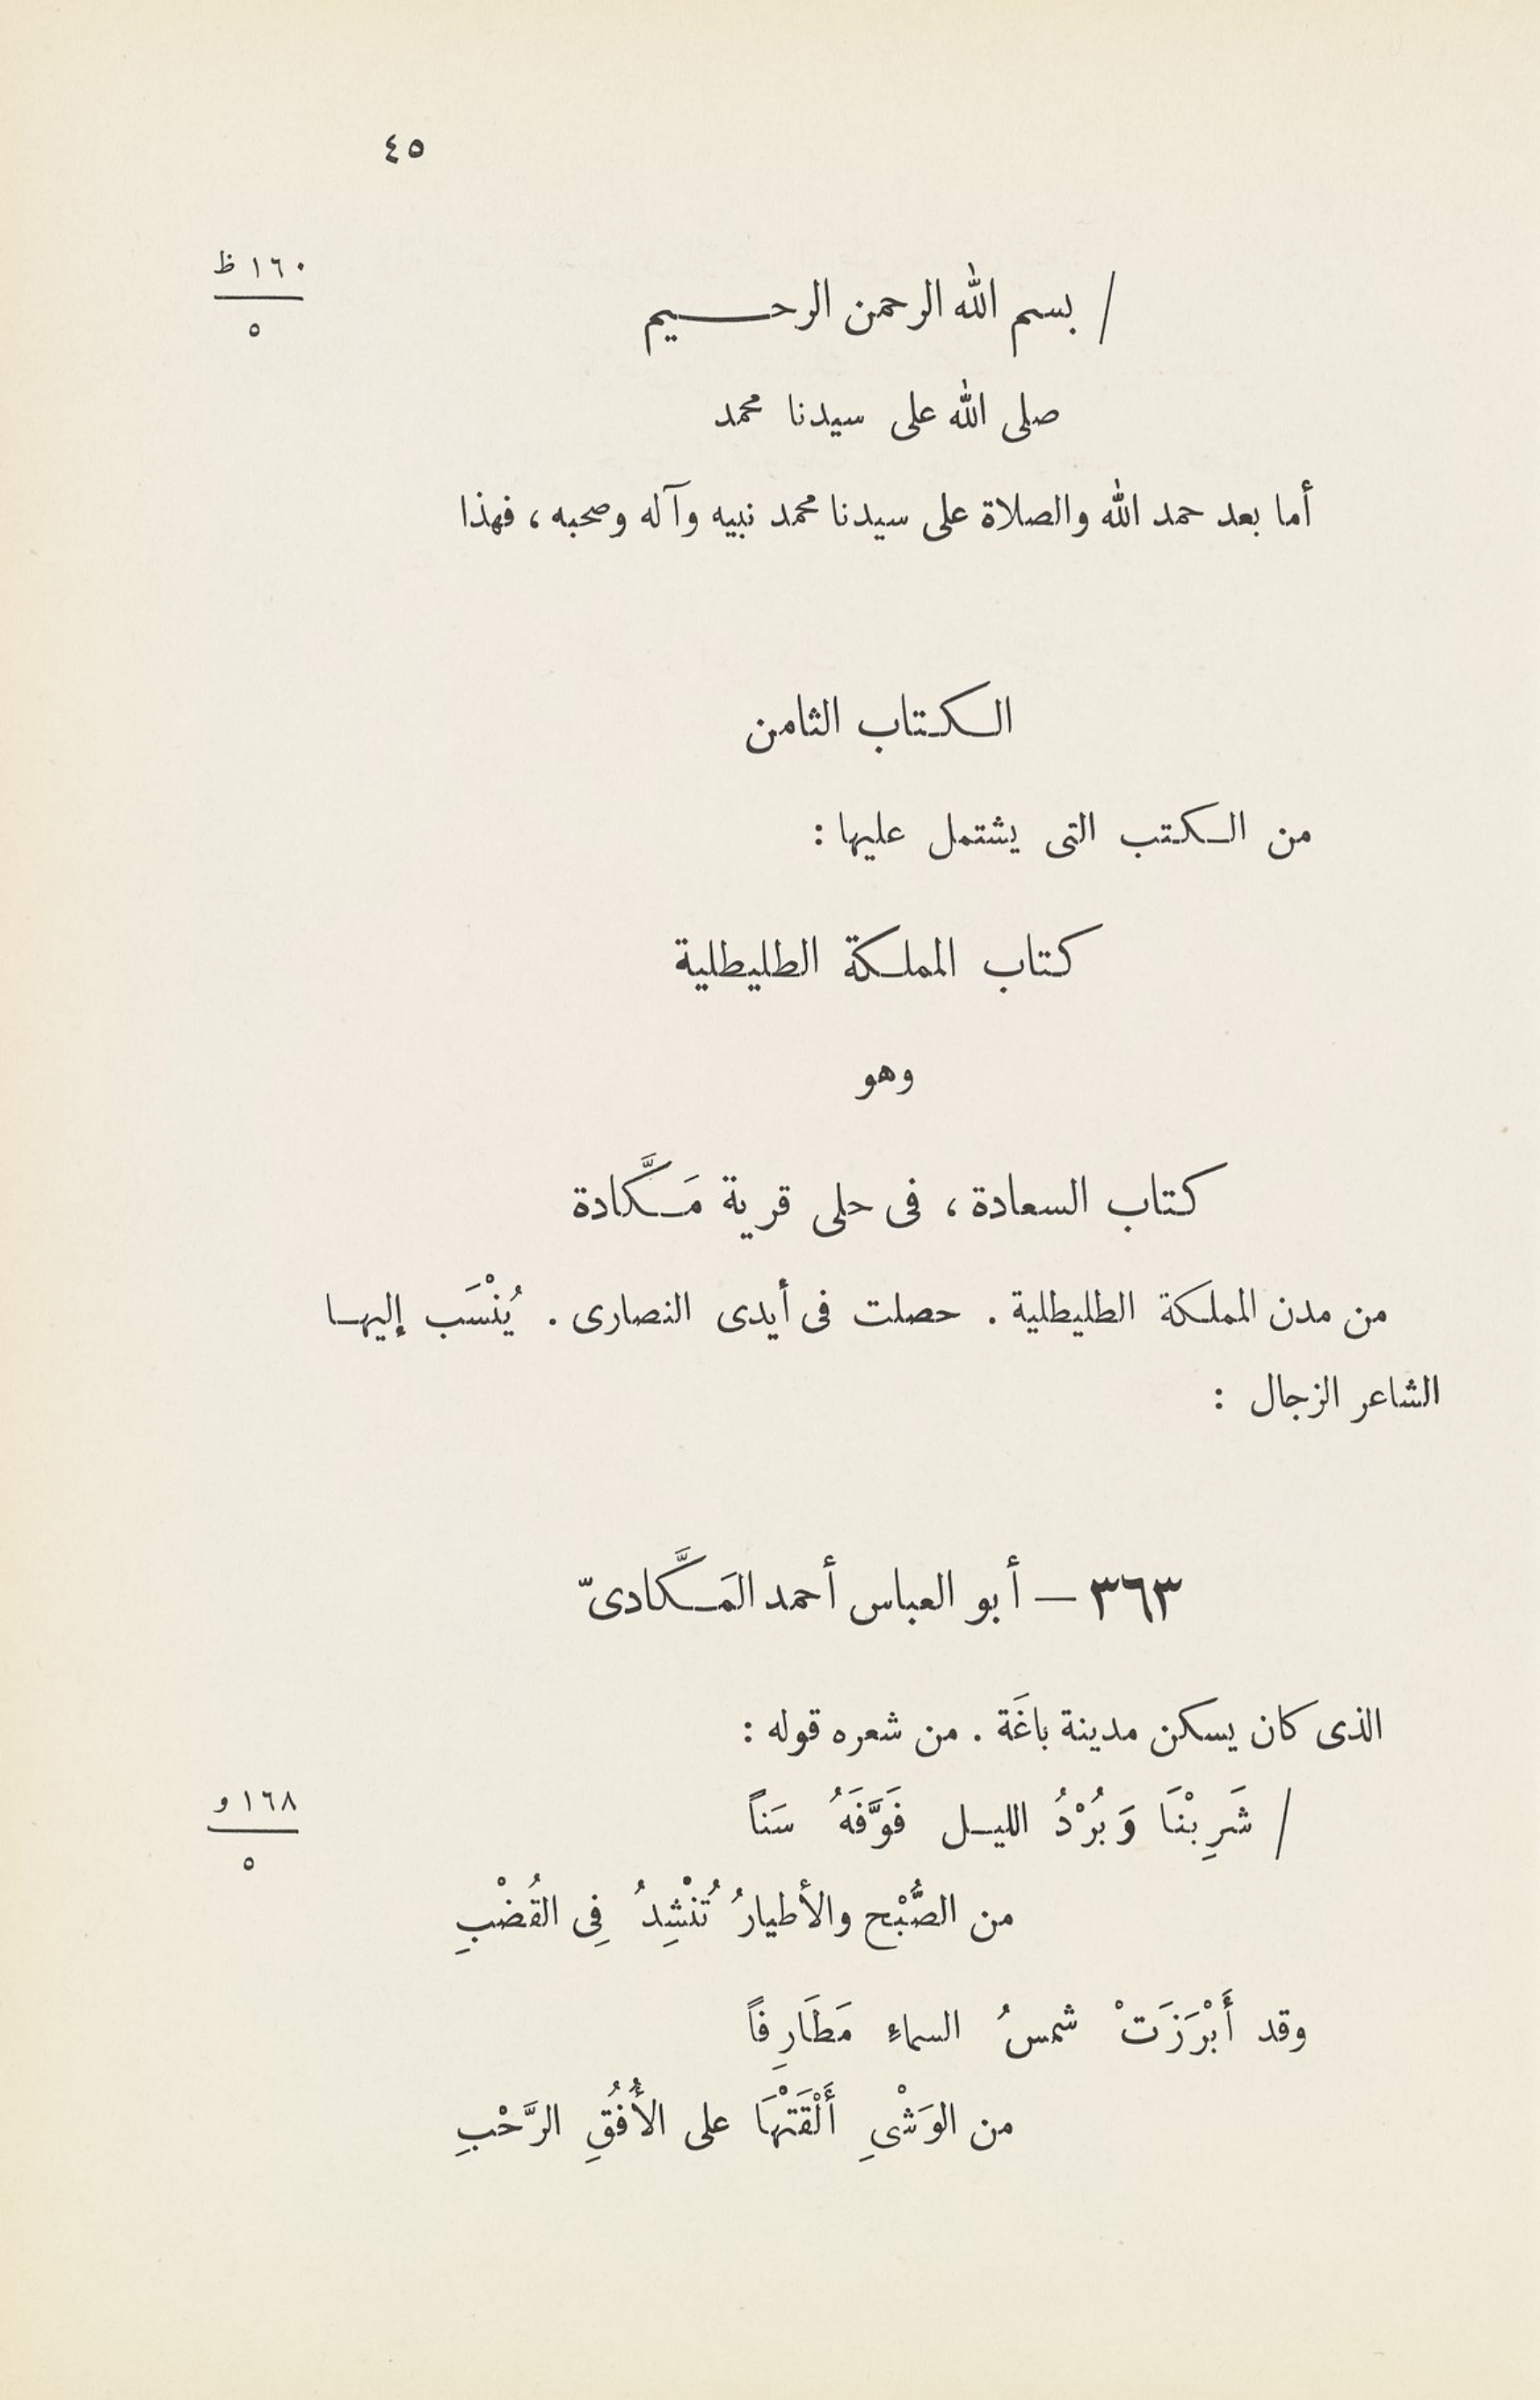 ٤٥
١٦٠ ظ
٥
/ بسم الله الرحمن الرحـــيم
صلى الله على سيدنا محمد
أما بعد حمد الله والصلاة على سيدنا محمد نبيه وآله وصحبه ، فهذا
الـكـتاب الثامن
من الـكـتب التى يشتمل عليها :
كـتاب المملـكة الطليطلية
وهو
كـتاب السعادة ، فى حلى قرية مَـكَّادة
من مدن المملـكة الطليطلية . حصلت فى أيدى النصارى . يُنْسَب إليهـا
الشاعر الزجال :
٣٦٣ — أبو العباس أحمد المَـكَّادىّ
الذى كان يسكن مدينة باغَة . من شعره قوله :
/ شَرِبْنَا وَبُرْدُ الليـل فَوَّفَهُ سَناً
١٦٨ و
٥
من الصُّبْح والأطيارُ تُنْشِدُ فِى القُضْبِ
وقد أَبْرَزَتْ شمسُ السماءِ مَطَارِفاً
من الوَشْىِ أَلْقَتْهَا على الأُفُقِ الرَّحْبِ